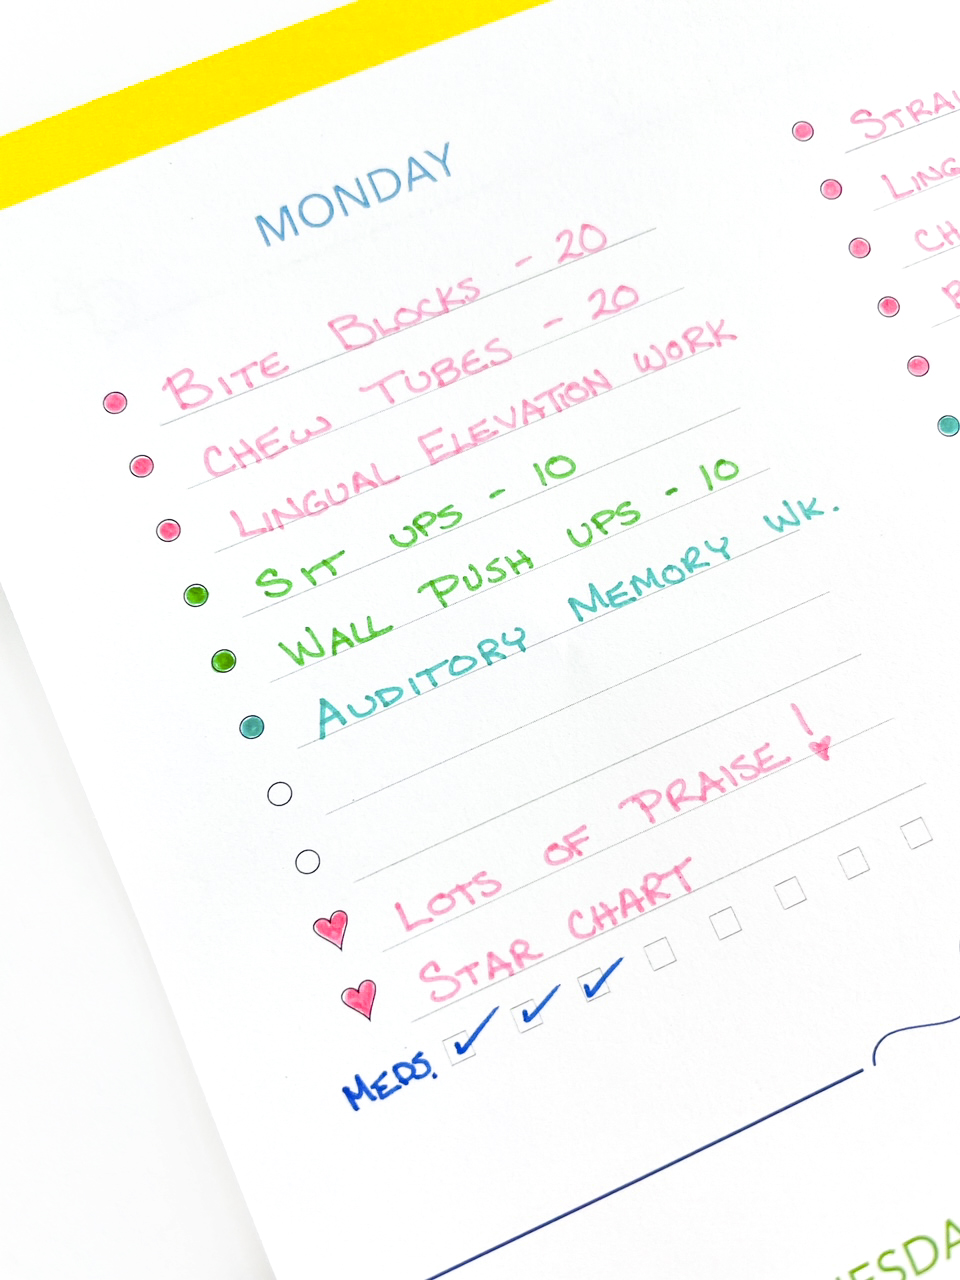 MONDAY
BITE BLOCKS - 20
CHEW TUBES - 20
LINGUAL ELEVATION WORK
SIT UPS - 10
WALL PUSH UPS - 10
AUDITORY MEMORY WK.
LOTS OF PRAISE!
STAR CHART
MEDS.